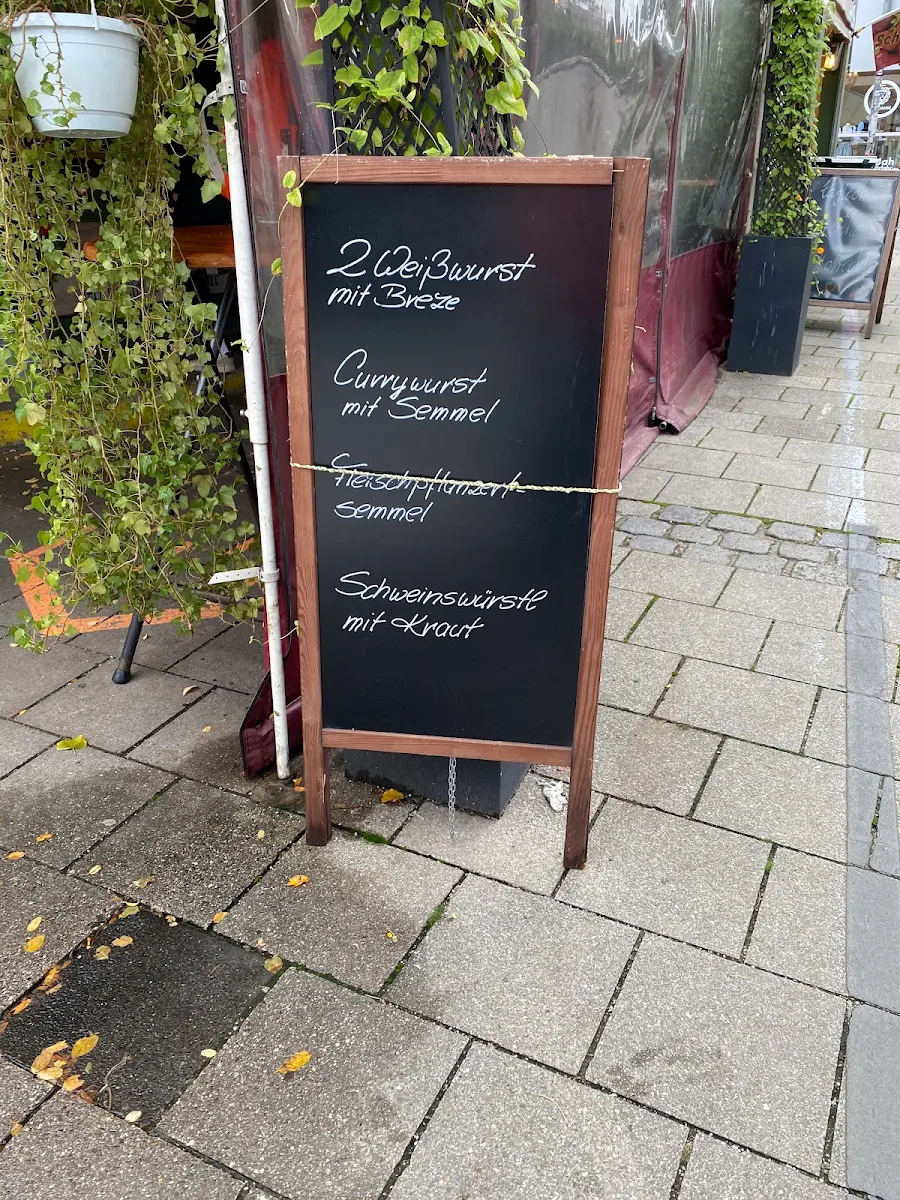 2 Weißwurst
mit Breze
Currywurst
mit Semmel
Fleischpflanzerl-
semmel
Schweinswürstl
mit Kraut